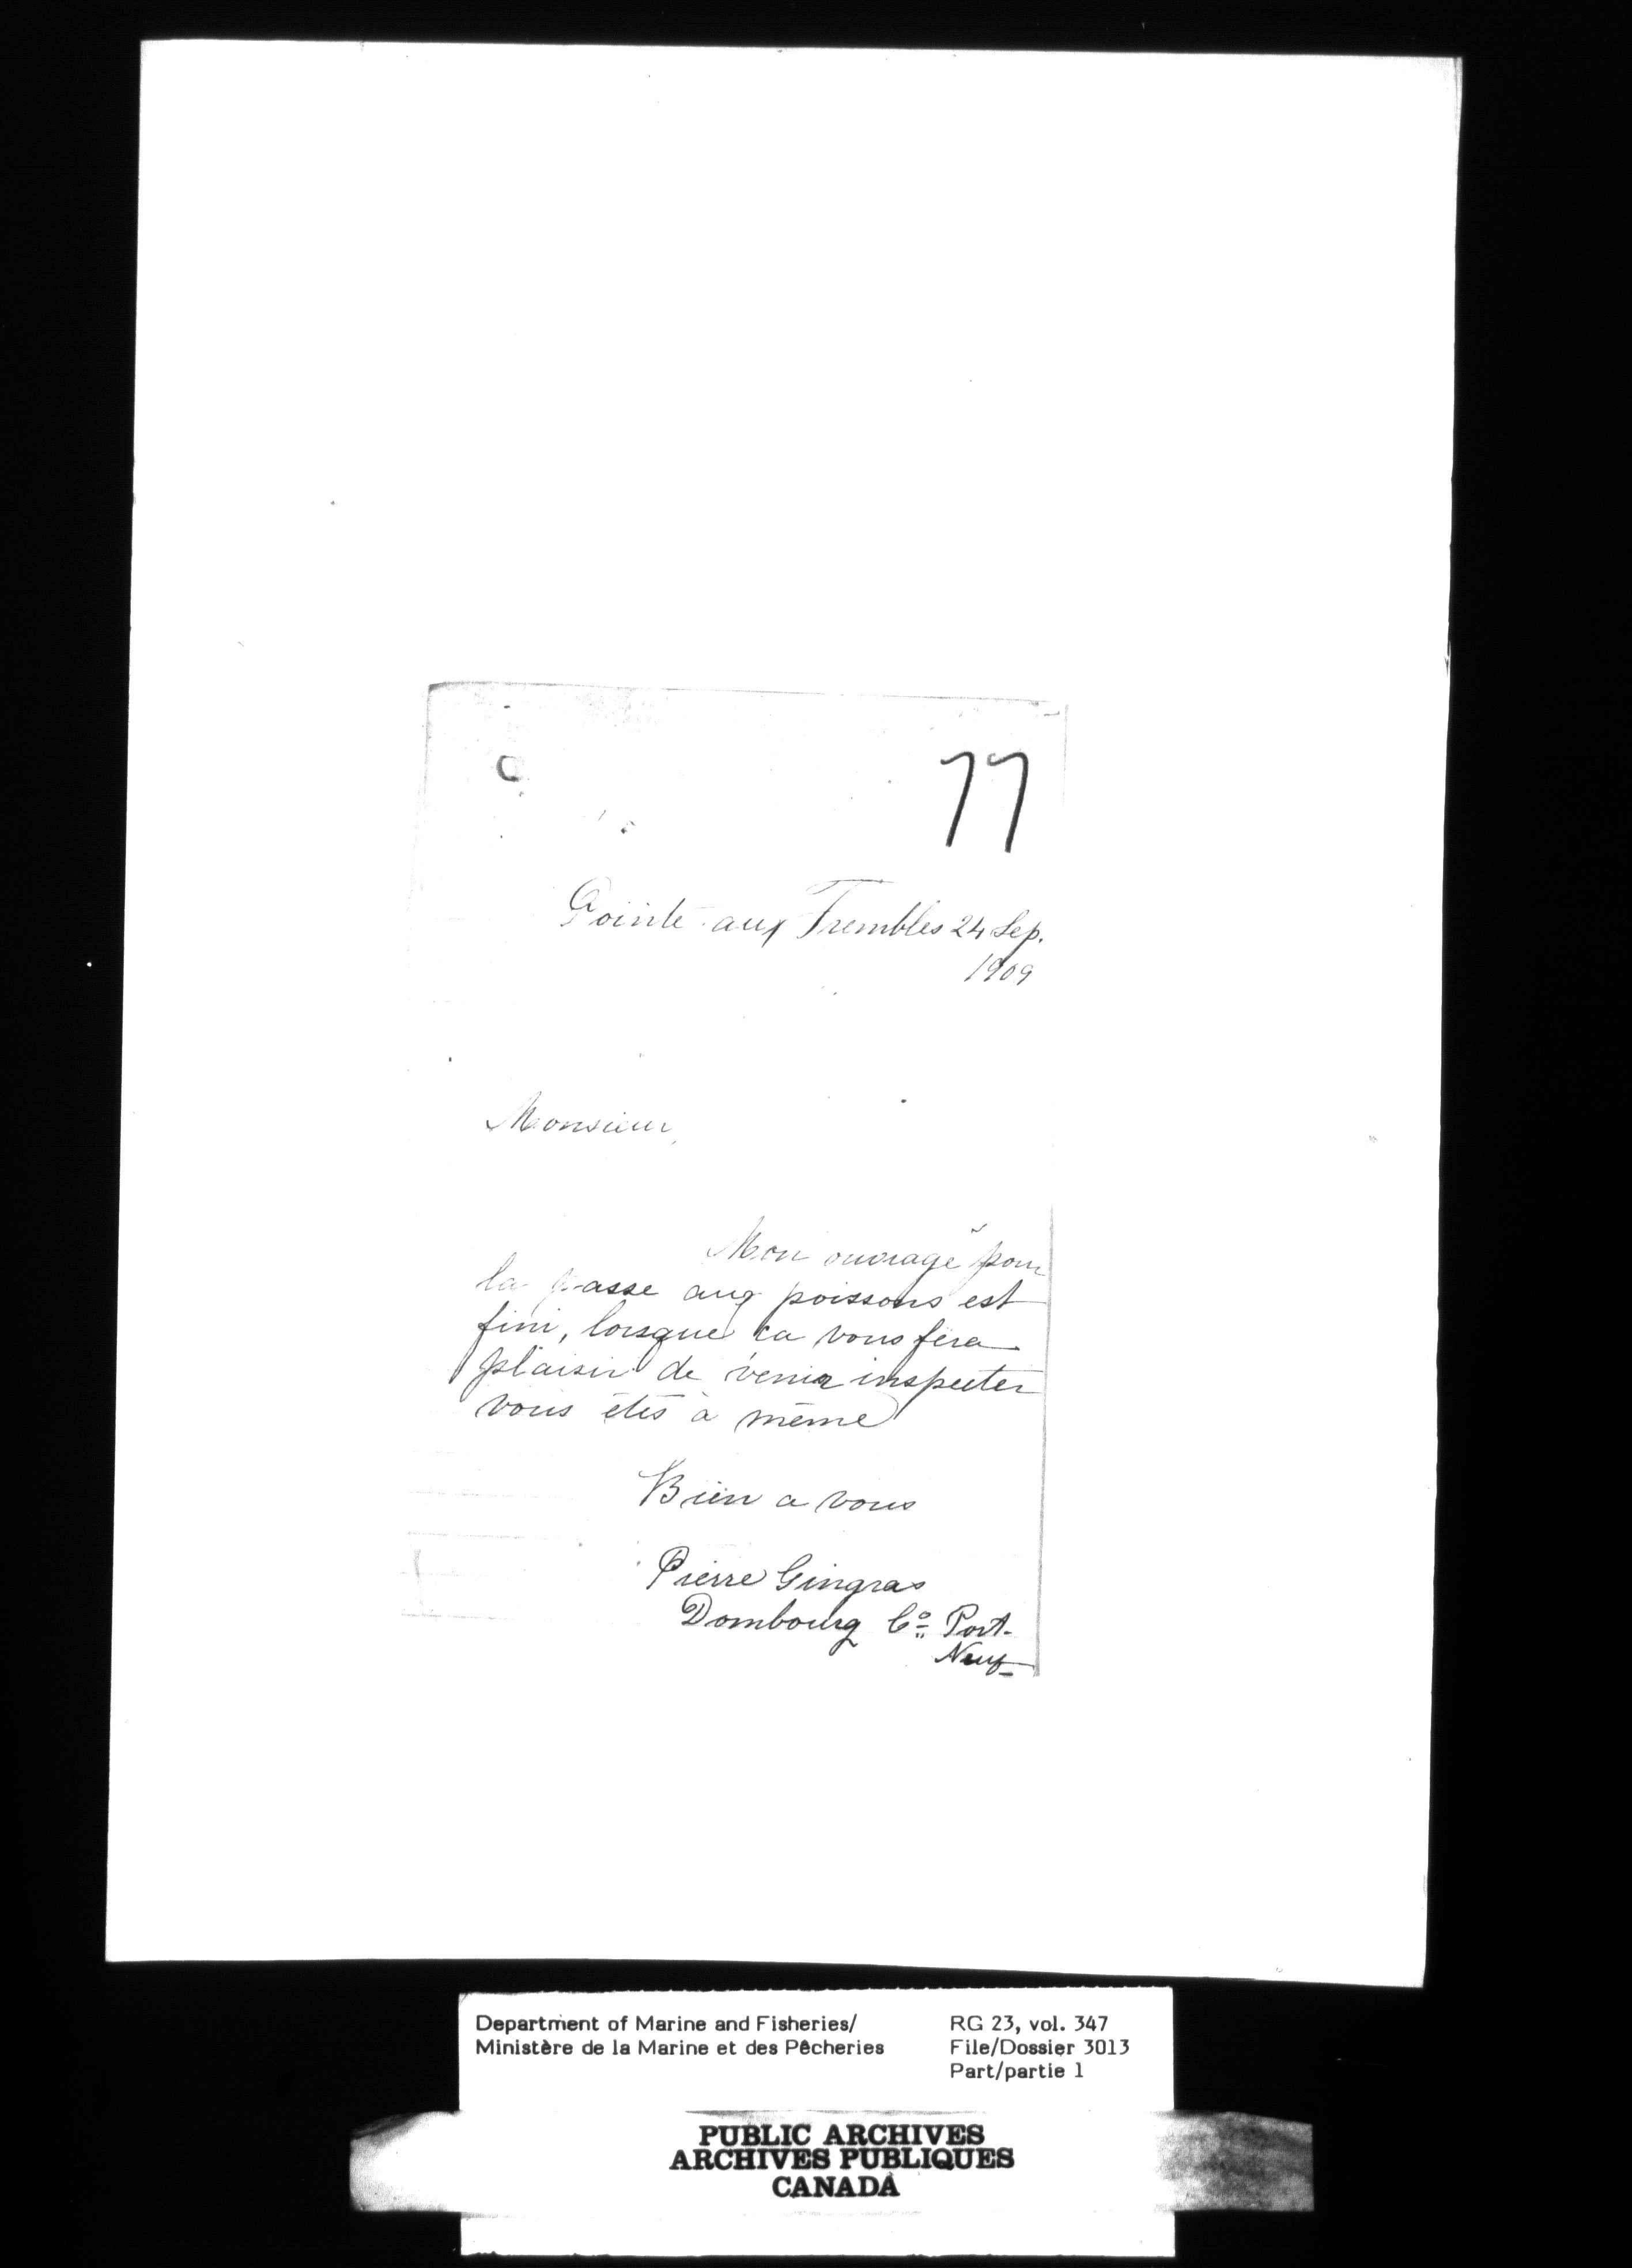 77
Pointe-aux Trembles 24 Sep.
1909
Monsieur,
Mon ouvrage pour
la passe aux poissons est
fini, lorsque ca vous fera
plaisir de venir inspecter
vous êtes à même
Bien a vous
Pierre Gingras
Dombourg Co Port-
Neuf
Department of Marine and Fisheries/
Ministère de la Marine et des Pêcheries
RG 23, vol. 347
File/Dossier 3013
Part/partie 1
PUBLIC ARCHIVES
ARCHIVES PUBLIQUES
CANADA